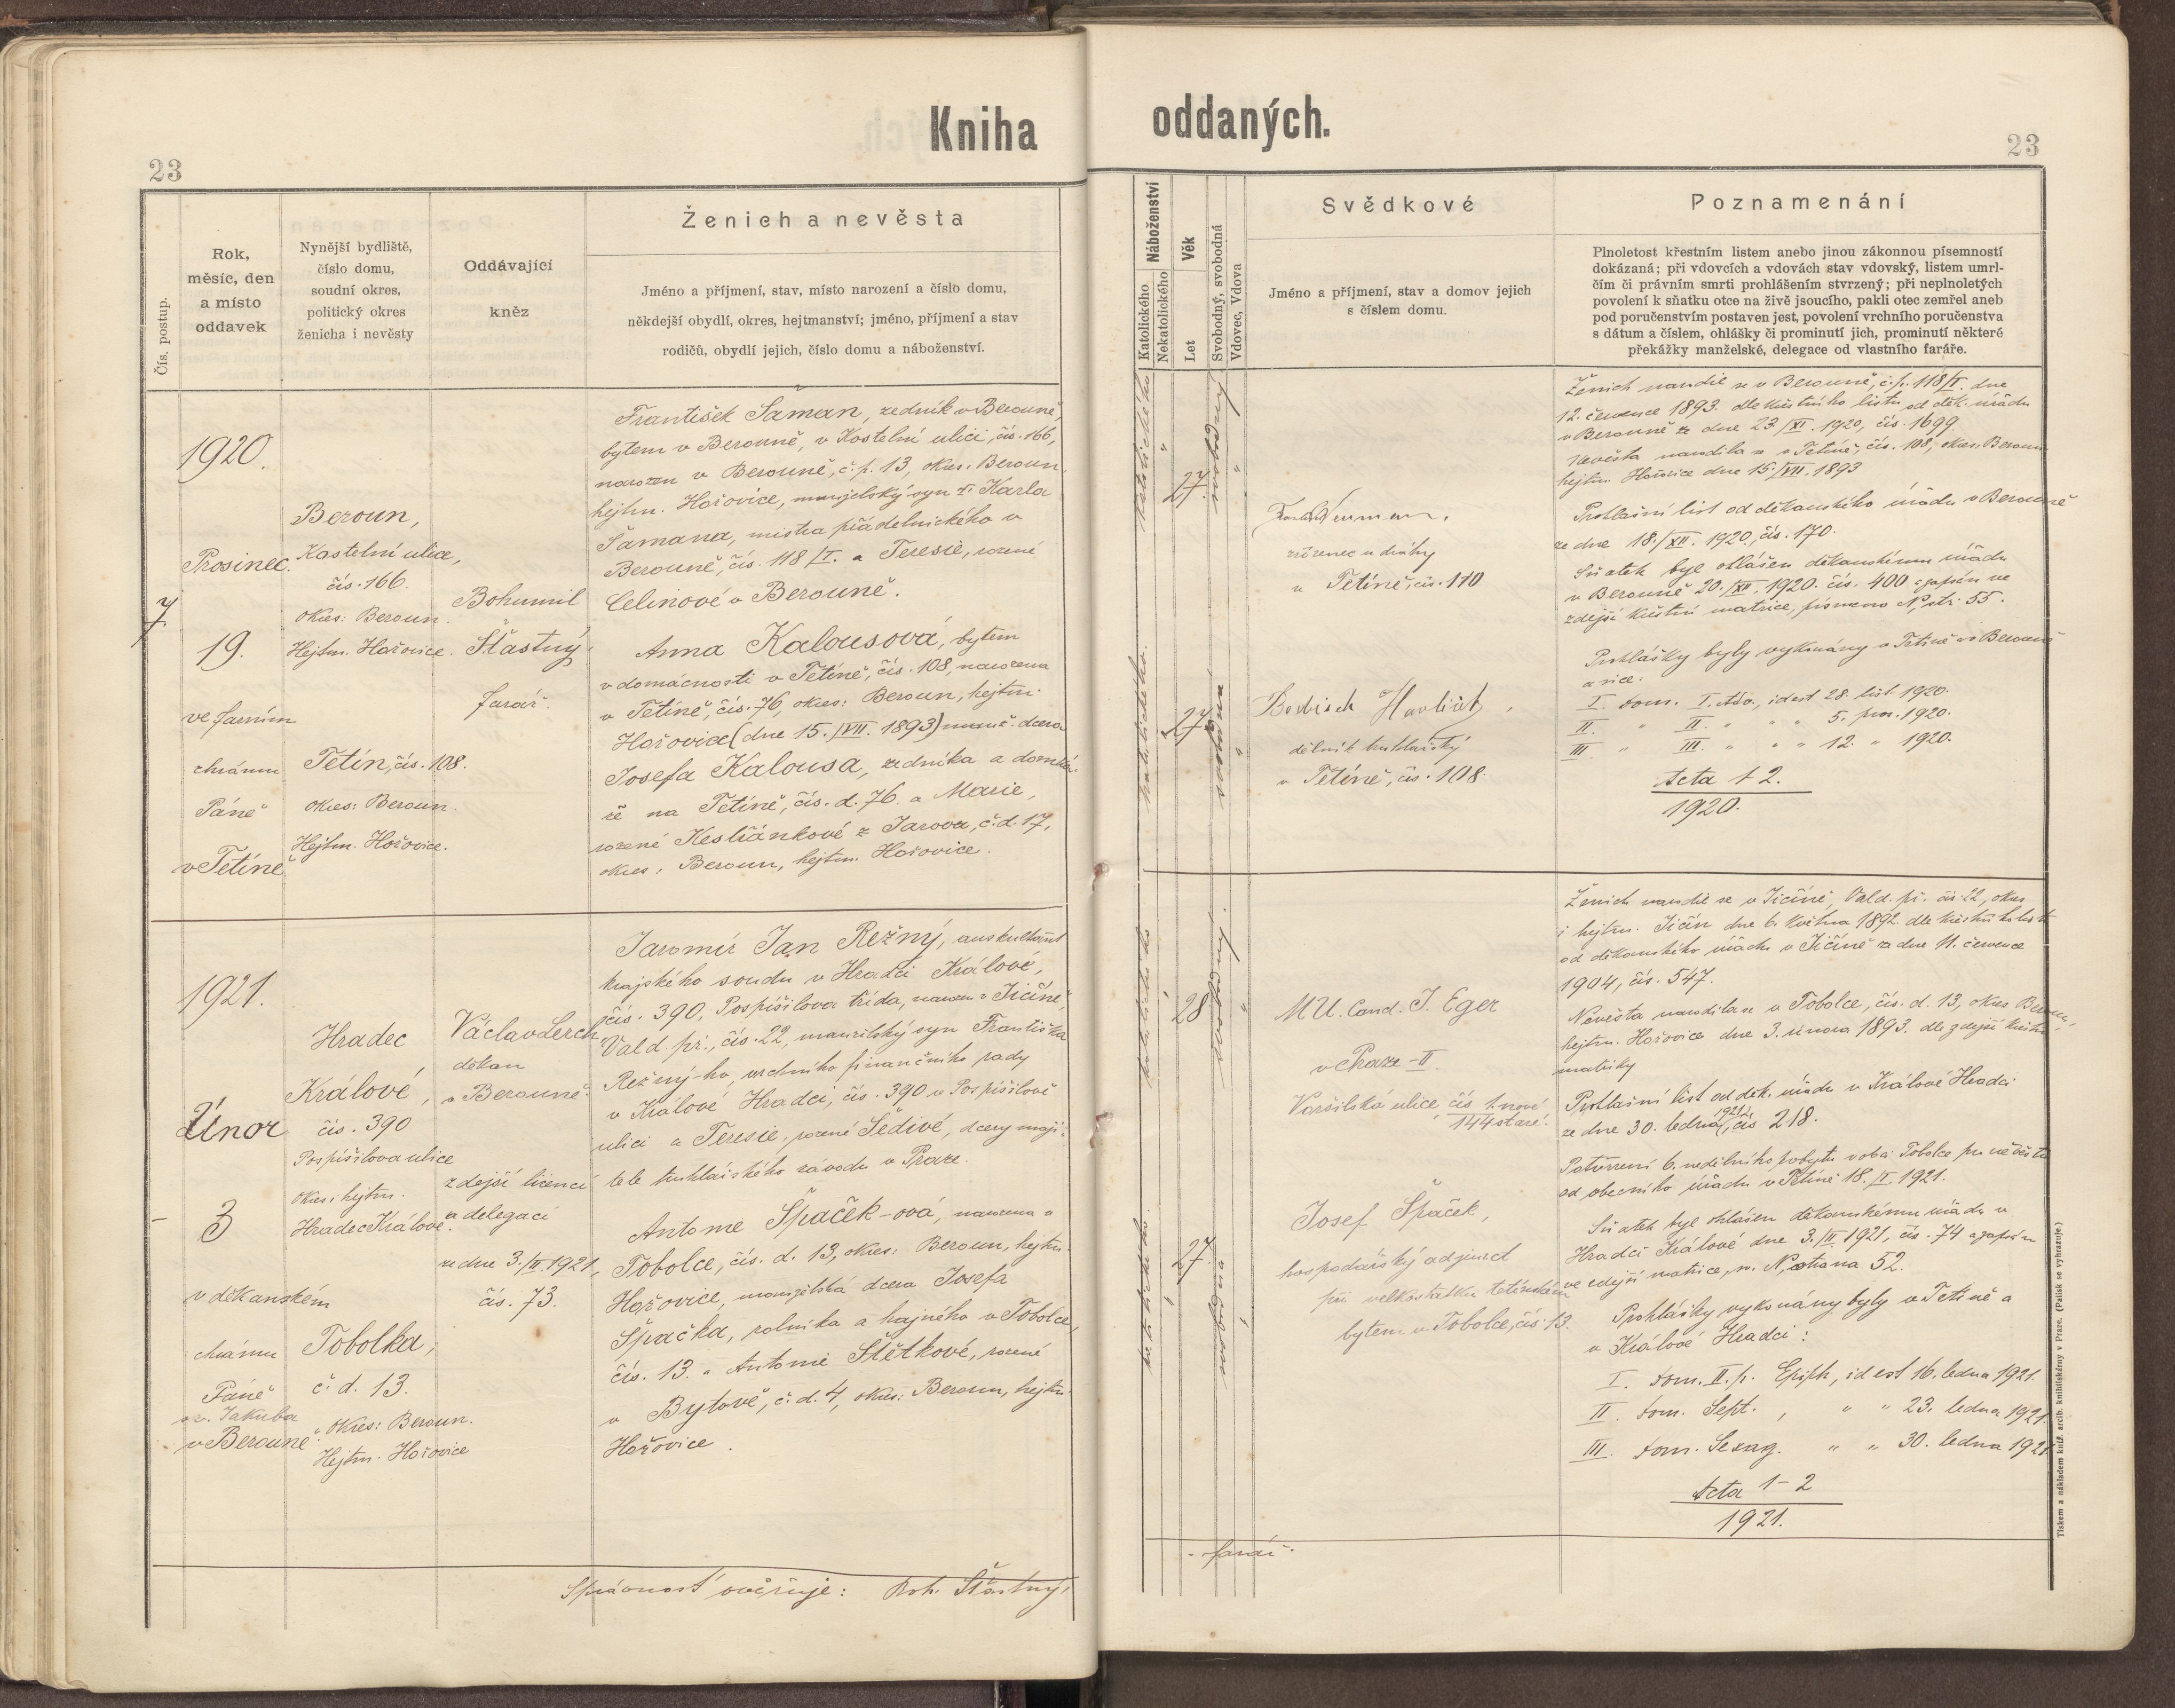 Kniha oddaných.
23
23
Čís. postup.
Rok,
měsíc, den
a místo
oddavek
Nynější bydliště,
číslo domu,
soudní okres,
politický okres
ženicha i nevěsty
Oddávající
kněz
Ženich a nevěsta
Jméno a příjmení, stav, místo narození a číslo domu,
někdejší obydlí, okres, hejtmanství; jméno, příjmení a stav
rodičů, obydlí jejich, číslo domu a náboženství.
Náboženství
Katolického
Nekatolického
Věk
Let
Svobodný, svobodná
Vdovec, Vdova
Svědkové
Jméno a příjmení, stav a domov jejich
s číslem domu.
Poznamenání
Plnoletost křestním listem anebo jinou zákonnou písemností
dokázaná; při vdovcích a vdovách stav vdovský, listem umrl-
čím či právním smrti prohlášením stvrzený; při neplnoletých
povolení k sňatku otce na živě jsoucího, pakli otec zemřel aneb
pod poručenstvím postaven jest, povolení vrchního poručenstva
s dátum a číslem, ohlášky či prominutí jich, prominutí některé
překážky manželské, delegace od vlastního faráře.
7.
1920.
Prosinec.
19.
ve farním
chrámu
Páně
v Tetíně
Beroun,
Kostelní ulice,
čís. 166.
Okres: Beroun.
Hejtm. Hořovice.
Tetín, čís. 108.
Okres: Beroun.
Hejtm. Hořovice.
Bohumil
Šťastný,
farář.
František Šaman, zedník v Berouně,
bytem v Berouně, v Kostelní ulici, čís. 166,
narozen v Berouně, č. p. 13, okres. Beroun
hejtm. Hořovice, manželský syn Karla
Šamana, mistra přádelnického v
Berouně, čís. 118/I. a Teresie, rozené
Celinové v Berouně.
Anna Kalousová, bytem
v domácnosti v Tetíně, čís. 108, narozena
v Tetíně, čís. 76, okres: Beroun, hejtm.
Hořovice (dne 15./VII. 1893) manž. dcera
Josefa Kalousa, zedníka a domká-
ře na Tetíně, čís. d. 76. a Marie,
rozené Kestřánkové z Jarova, č. d. 17,
okres: Beroun, hejtm. Hořovice.
katolického
"
27
svobodný
"
katolického.
27
svobodná
"
Neuman,
zřízenec u dráhy
v Tetíně, čís. 110
Bedřich Havlíček,
dělník truhlářský
v Tetíně, čís. 108.
Ženich narodil se v Berouně, č. p. 118/I. dne
12. července 1893. dle křestního listu od děk. úřadu
v Berouně ze dne 23./XI. 1920, čís. 1699
Nevěsta narodila se v Tetíně, čís. 108, okres. Beroun
hejtm. Hořovice dne 15./VII. 1893
Prohlašní list od děkanského úřadu v Berouně
ze dne 18./XII. 1920, čís. 170.
Sňatek byl ohlášen děkanskému úřadu
v Berouně 20./XII. 1920. čís. 400 a zapsán ve
zdejší křestní matrice, písmeno N, str. 55.
Prohlášky byly vykonány v Tetíně a v Berouně
a sice:
I. dom. I. Adv., id est 28. list. 1920.
II. " II. " " " 5. pros. 1920.
III " III. " " " 12. " 1920.
Acta 1 2.
1920.
1921.
Únor
3
v děkanském
chrámu
Páně
sv. Jakuba
v Berouně
Hradec
Králové,
čís. 390
Pospíšilova ulice
okres, hejtm.
Hradec Králové.
Tobolka,
č. d. 13.
Okres: Beroun.
Hejtm. Hořovice
Václav Lerch
děkan
v Berouně.
zdejší licencí
a delegací
ze dne 3./II. 1921,
čís. 73.
Jaromír Jan Režný, auskultant
krajského soudu v Hradci Králové,
čís. 390, Pospíšilova třída, narozen v Jičíně,
Vald. př., čís. 22, manželský syn Františka
Režný-ho, vrchního finančního rady
v Králové Hradci, čís. 390 v Pospíšilově
ulici a Teresie, rozené Šedivé, dcery maji-
tele truhlářského závodu v Praze.
Antonie Špaček-ová, narozena v
Tobolce, čís. d. 13, okres: Beroun, hejtm.
Hořovice, manželská dcera Josefa
Špačka, rolníka a hajného v Tobolce,
čís. 13. a Antonie Štětkové, rozené
v Bytově, č. d. 4, okres: Beroun, hejtm.
Hořovice.
katolického
28
svobodný.
"
katolického
27.
svobodná
MU. Cand. J. Eger
v Praze - II.
Voršilská ulice, čís 1. nové
144 staré.
Josef Špaček,
hospodářský adjunct
při velkostatku tetínském
bytem v Tobolce, čís. 13.
Ženich narodil se v Jičíně, Vald. př. čís. 22, okres
i hejtm. Jičín dne 6. května 1892. dle křestního listu
od děkanského úřadu v Jičíně ze dne 11. července
1904, čís. 547.
Nevěsta narodila se v Tobolce, čís. d. 13, okres Beroun,
hejtm. Hořovice dne 3. února 1893. dle zdejší knihy
matriky
Prohlašní list od děk. úřadu v Králové Hradci
ze dne 30. ledna 1921, čís 218.
Potvrzení 6. nedělního pobytu v obci Tobolce pro nevěstu
od obecního úřadu v Tetíně 18./I. 1921.
Sňatek byl ohlášen děkanskému úřadu v
Hradci Králové dne 3./II. 1921, čís. 74 a zapsán
ve zdejší matrice, p. N, strana 52.
Prohlášky vykonány byly v Tetíně a
v Králové Hradci:
I. dom. II. p. Epiph, id est 16. ledna 1921.
II. dom. Sept. , " " 23. ledna 1921.
III. dom. Sexag. " " 30. ledna 1921
Acta 1-2
1921.
Správnost ověřuje: Boh. Šťastný,
farář.
Tiskem a nákladem kníž. arcib. knihtiskárny v Praze. (Patisk se vyhrazuje.)